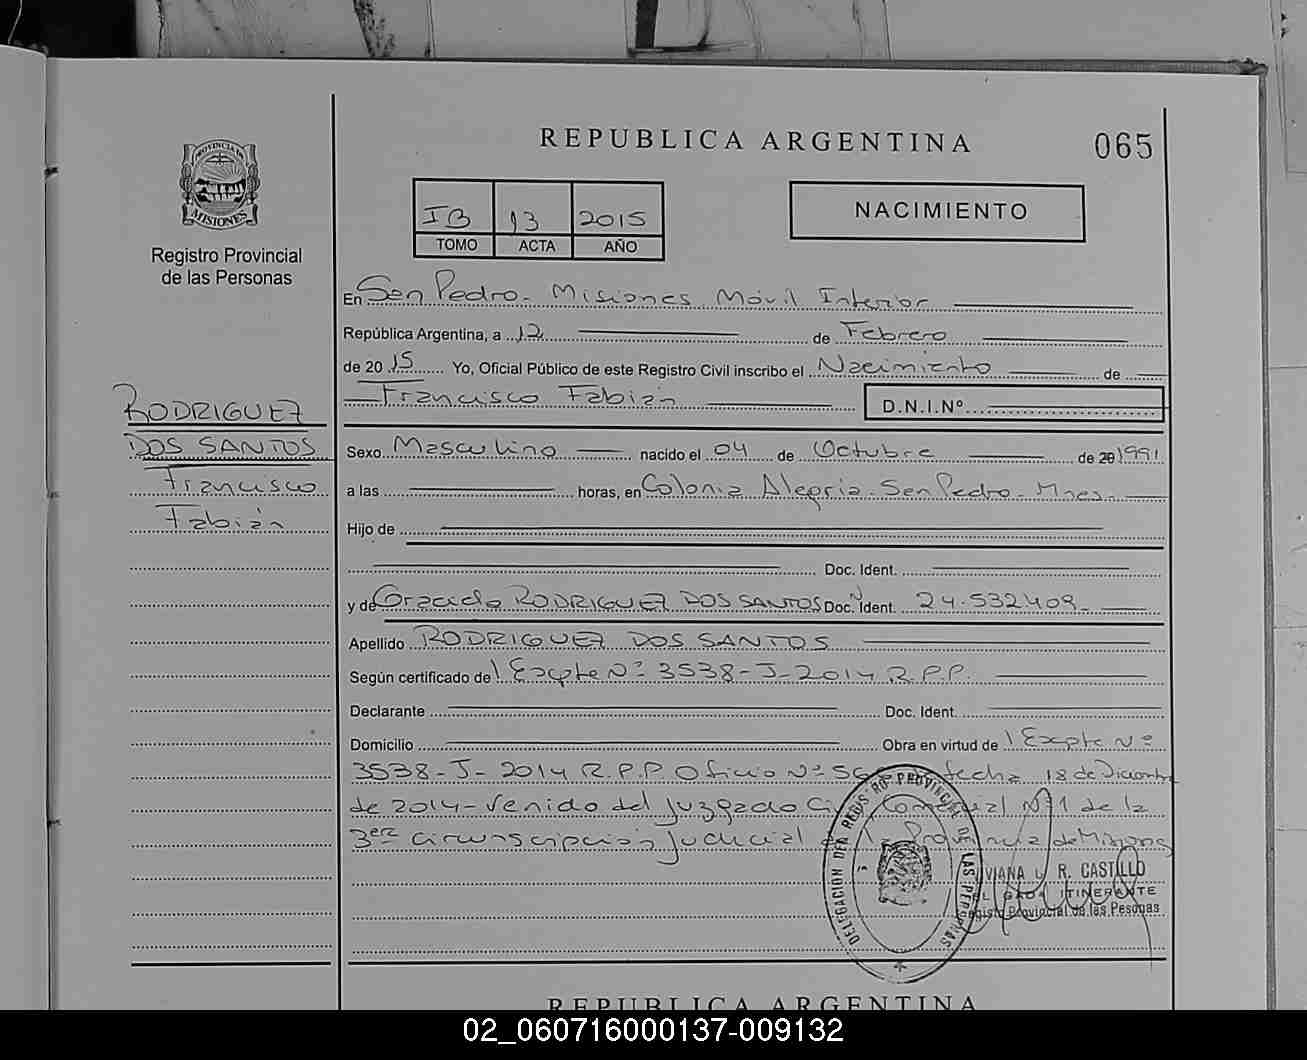 REPUBLICA ARGENTINA
065
PROVINCIA DE
MISIONES
Registro Provincial
de las Personas
IB 13 2015
TOMO ACTA AÑO
NACIMIENTO
En San Pedro - Misiones Móvil Interior
República Argentina, a 12 de Febrero
de 2015 Yo, Oficial Público de este Registro Civil inscribo el Nacimiento de
Francisco Fabián D.N.I.Nº
RODRIGUEZ
DOS SANTOS
Francisco
Fabián
Sexo Masculino nacido el 04 de Octubre de 1991
a las horas, en Colonia Alegria - San Pedro - Mnes.
Hijo de
Doc. Ident.
y de Graciela RODRIGUEZ DOS SANTOS Doc. Ident. 24.532409
Apellido RODRIGUEZ DOS SANTOS
Según certificado de Expte Nº 3538-J-2014 R.P.P.
Declarante Doc. Ident.
Domicilio Obra en virtud de Expte Nº
3538-J-2014 R.P.P Oficio Nº 56 fecha 18 de Diciembre
de 2014 - venido del Juzgado Civil Comercial Nº 1 de la
3era circunscripción Judicial de la Provincia de Misiones
DELEGACION DEL REGISTRO PROVINCIAL DE LAS PERSONAS
R. CASTILLO
ITINERANTE
Registro Provincial de las Personas
REPUBLICA ARGENTINA
02_060716000137-009132